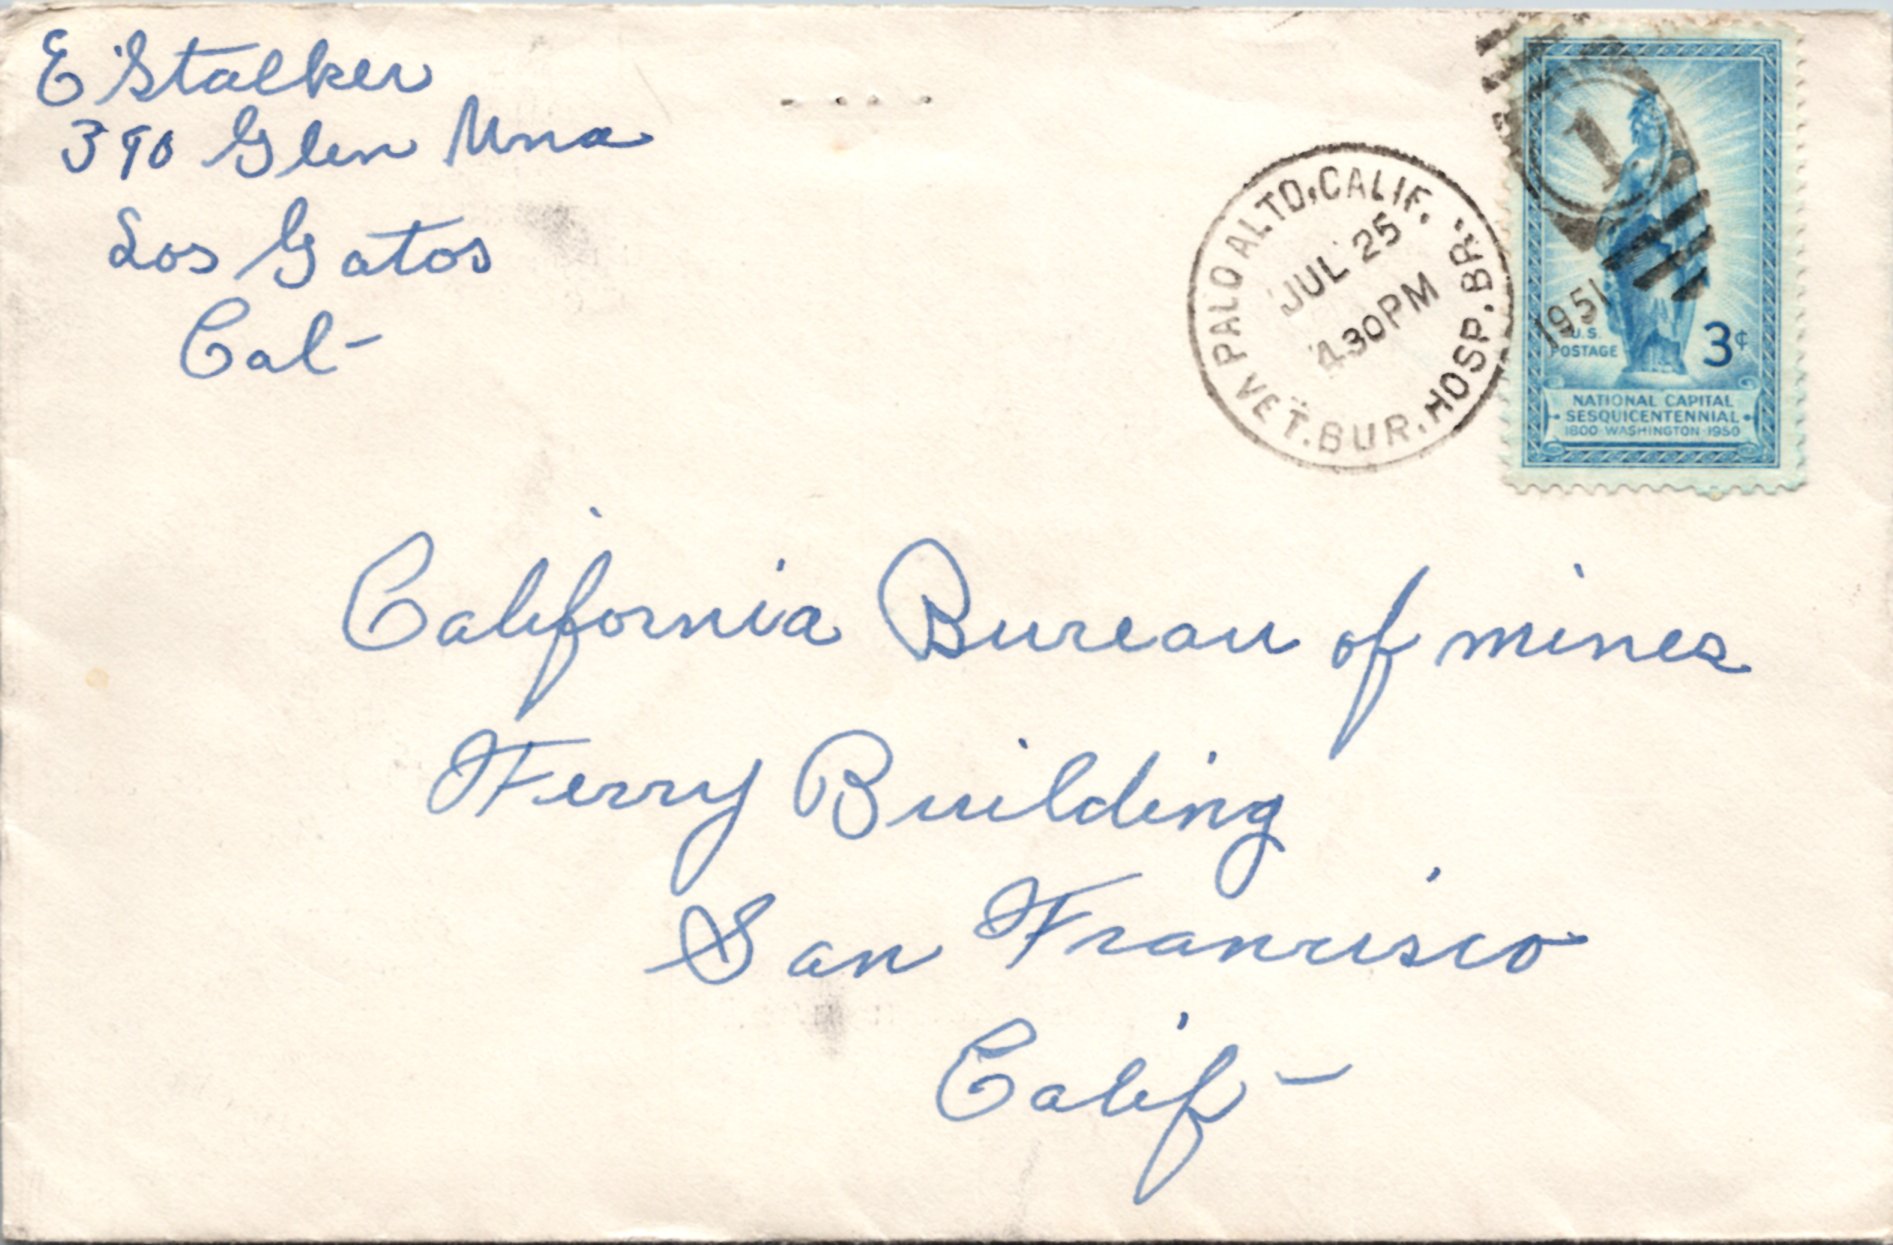 E Stalker
390 Glen Una
Los Gatos
Cal-
PALO ALTO, CALIF.
VET. BUR. HOSP. BR.
JUL 25
4 30 PM
1951
1
U.S.
POSTAGE
3¢
NATIONAL CAPITAL
SESQUICENTENNIAL
1800·WASHINGTON·1950
California Bureau of mines
Ferry Building
San Francisco
Calif-